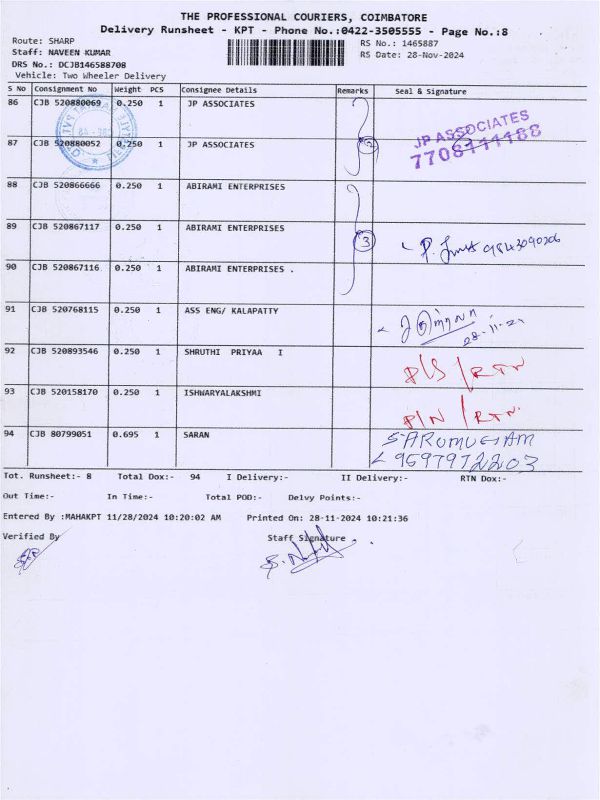 THE PROFESSIONAL COURIERS, COIMBATORE
Delivery Runsheet - KPT - Phone No.:0422-3505555 - Page No.:8
Route: SHARP
RS No.: 1465887
Staff: NAVEEN KUMAR
RS Date: 28-Nov-2024
DRS No.: DCJB146588708
Vehicle: Two Wheeler Delivery
S No Consignment No Weight PCS Consignee Details Remarks Seal & Signature
86 CJB 520880069 0.250 1 JP ASSOCIATES
JP ASSOCIATES
7708111188
87 CJB 520880052 0.250 1 JP ASSOCIATES 2
88 CJB 520866666 0.250 1 ABIRAMI ENTERPRISES
89 CJB 520867117 0.250 1 ABIRAMI ENTERPRISES 3
9843090206
90 CJB 520867116 0.250 1 ABIRAMI ENTERPRISES .
91 CJB 520768115 0.250 1 ASS ENG/ KALAPATTY
28-11-24
92 CJB 520893546 0.250 1 SHRUTHI PRIYAA I
P/S / RTN
93 CJB 520158170 0.250 1 ISHWARYALAKSHMI
P/N / RTN.
94 CJB 80799051 0.695 1 SARAN
S. ARUMUGAM
9597972203
Tot. Runsheet:- 8 Total Dox:- 94 I Delivery:- II Delivery:- RTN Dox:-
Out Time:- In Time:- Total POD:- Delvy Points:-
Entered By :MAHAKPT 11/28/2024 10:20:02 AM Printed On: 28-11-2024 10:21:36
Verified By Staff Signature